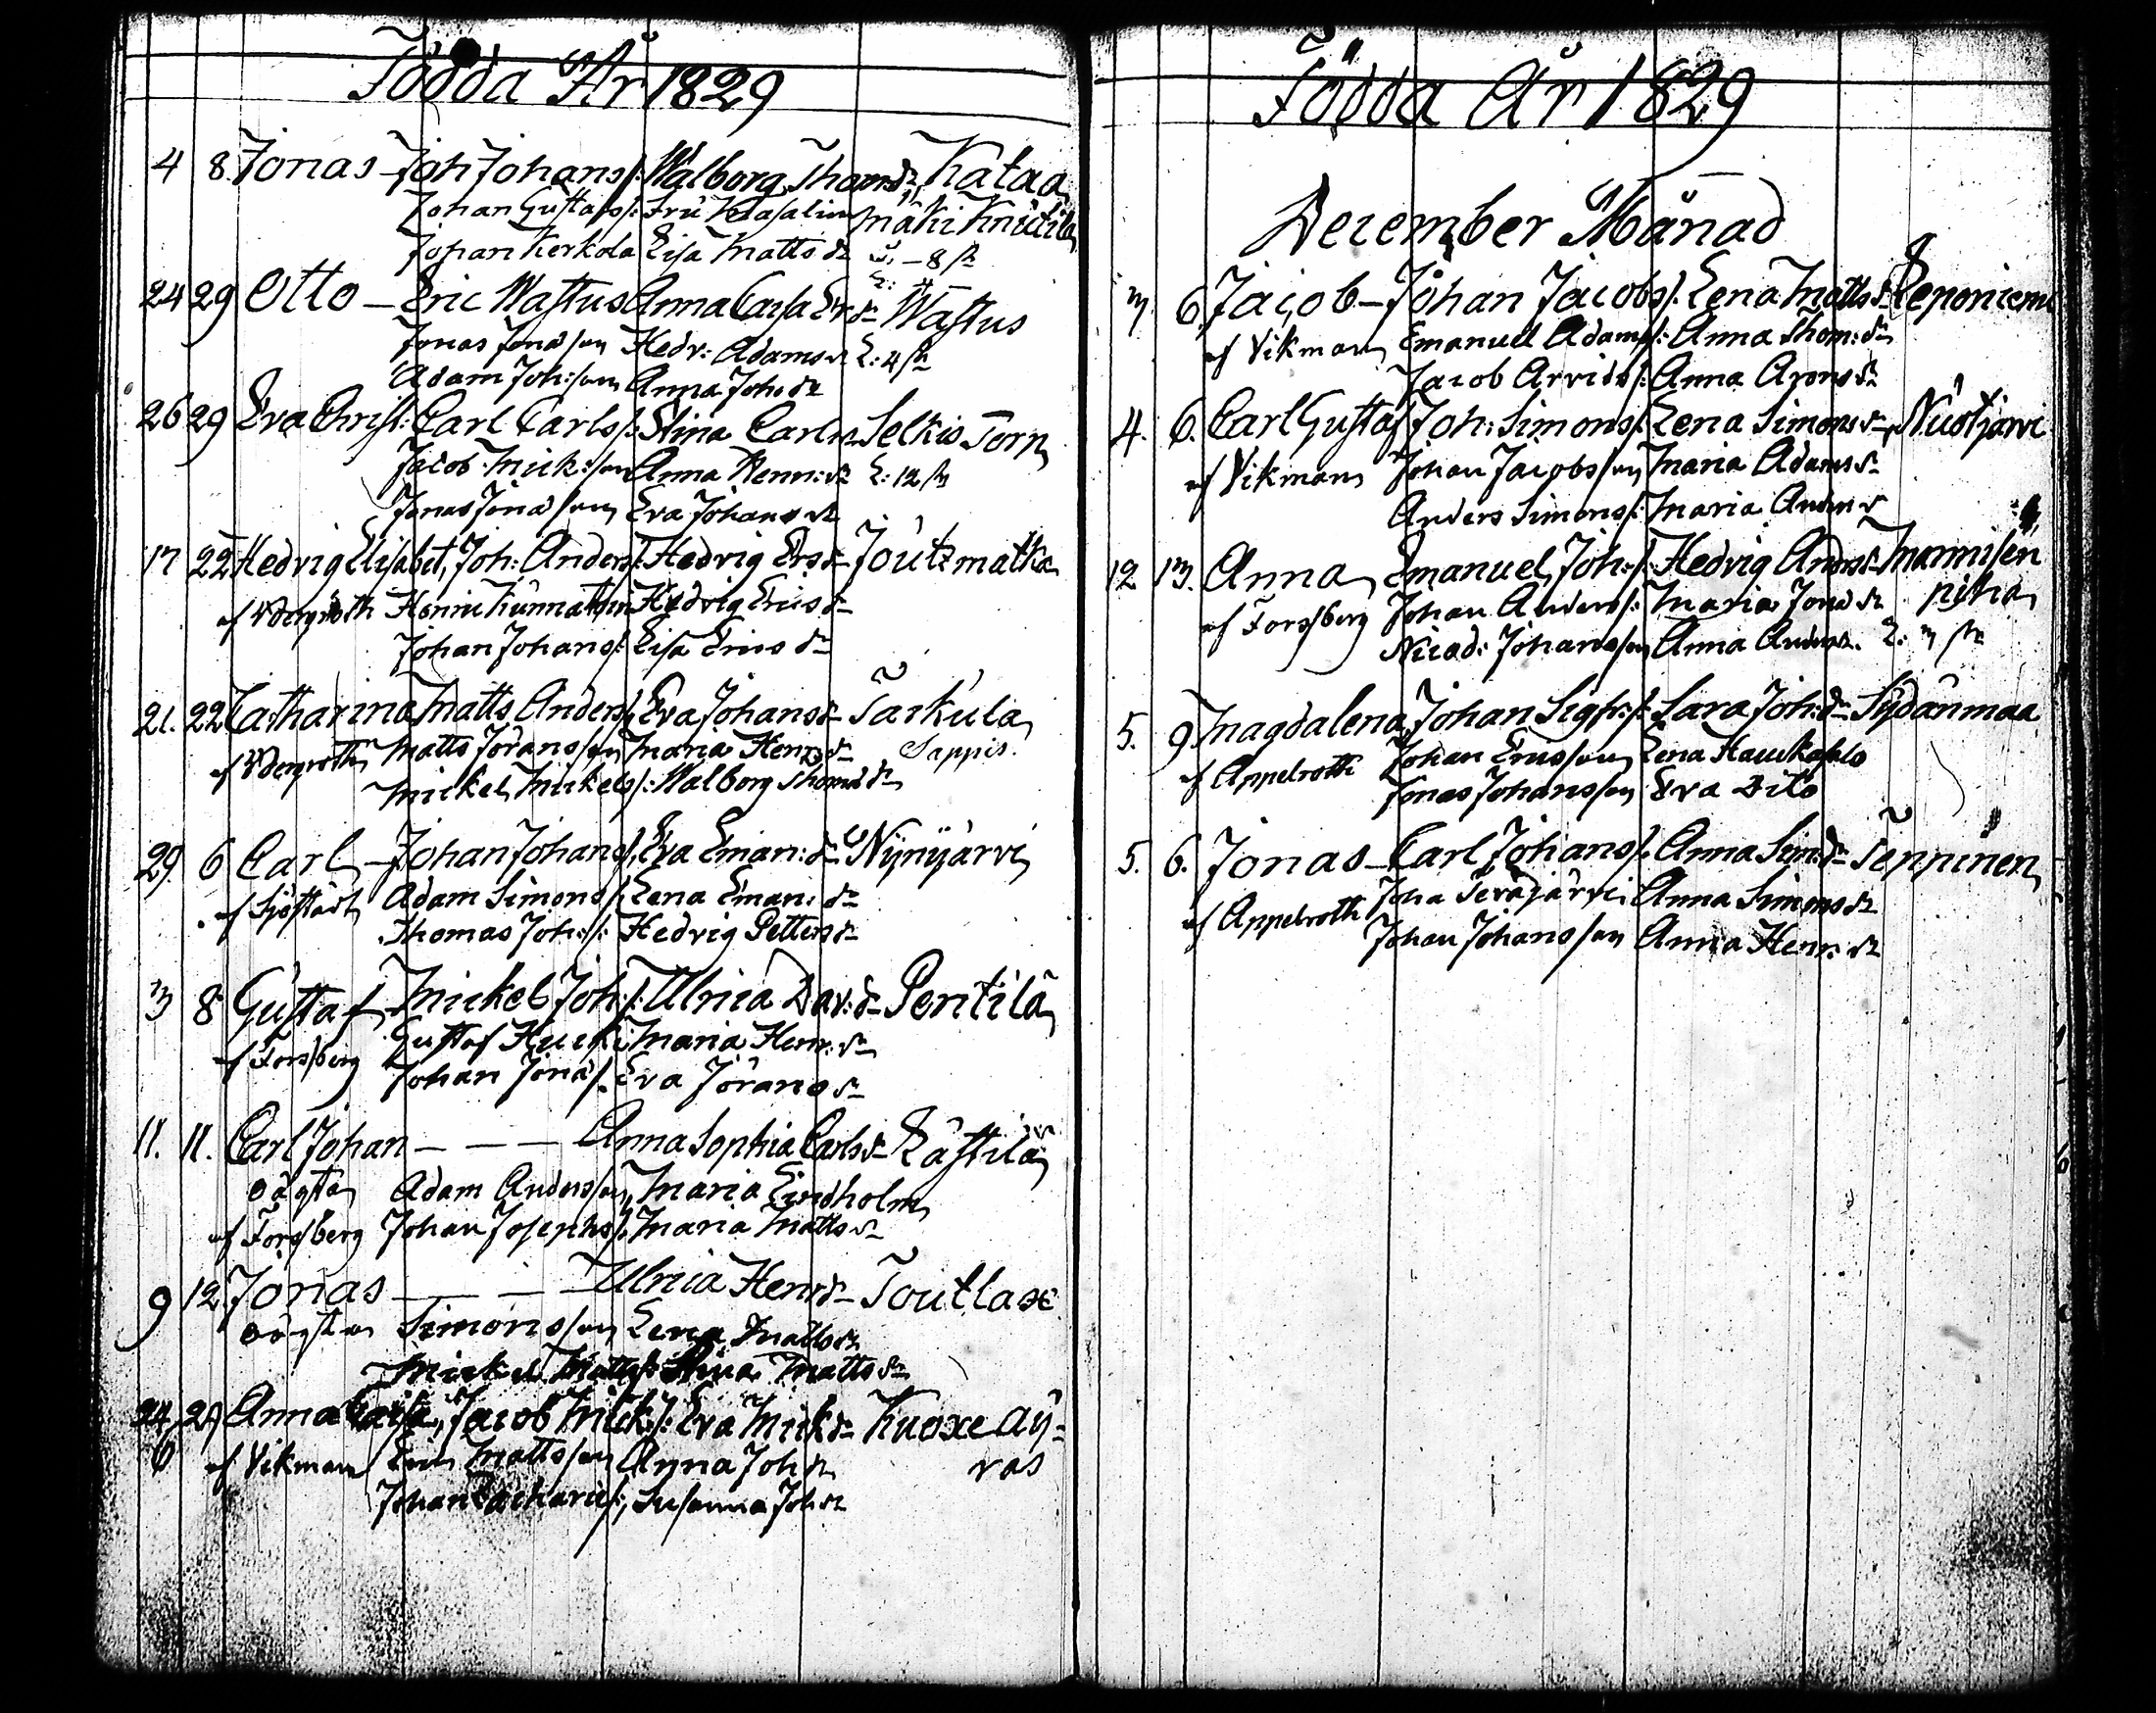 Födda År 1829
4 8. Jonas – Joh Johans/: Walborg Thom:dr Kataa
Johan Gustafs/: Fru Kla/alin mäki Knutila
Johan Kerkola Lisa Matts dr – 8 /k
24 29 Otto – Eric Wastus Anna Caisa Er:dr Wastus
Jonas Jona/son Hedv: Adams dr L: 4 /k
Adam Joh:/son Anna Joh:dr
26 29 Eva Christ: Carl Carls/: Stina Carls Selkis Torp
Jacob Mick:/son Anna Henr:dr L: 12 /k
Jonas Jona/son Eva Johans dr
17 22 Hedvig Elisabet, Joh: Anders/: Hedvig Ers dr Joutzmatka
af Henric Hedvig Erics dr
Johan Johans/: Lisa Erics dr
21. 22 Catharina Matts Anders/: Eva Johans dr Tarkula
af Matts Jörans/son Maria Henr dr Sappis.
Mickel Mickels/: Walborg Thomas dr
29. 6 Carl – Johan Johans/: Eva Eman:dr Nynyärvi
af Adam Simons/: Lena Eman: dr
Thomas Joh:/: Hedvig Petters dr
3 8 Gustaf – Mickel Joh:/: Ulrica Dav:dr Pentilä
af Forsberg Gustaf Maria Henr: dr
Johan Jona/: Eva Jörans dr
11. 11. Carl Johan – – – Anna Sophia Carls dr Rästilä
oägta Adam Anders/son, Maria Lindholm
af Forsberg Johan Josephs/: Maria Matts dr
9 12 Jonas – – – Ulrica Henr dr Toutlax
oägta Simons/son Lena Matts dr
Mickel Matts/: Stina Matts dr
24 29 Anna Caisa, Jacob Mick:/: Eva Mick dr Kuoxe äy=
6 af Vikman Eric Matts/son Anna Joh dr räs
Johan Zacharis/:, Susanna Joh dr
Födda År 1829
December Månad
3. 6. Jacob – Johan Jacobs/: Lena Matts dr Reponiemi
af Vikman Emanuel Adams/: Anna Thom: dr
Jacob Arvids/: Anna Arons dr
4. 6. Carl Gustaf Joh: Simons/: Lena Simons dr Nuotjärvi
af Vikman Johan Jacobs/son Maria Adams dr
Anders Simons/: Maria Anders dr
12 13. Anna Emanuel Joh:/: Hedvig Anders dr Mannisen
af Forsberg Johan Anders/: Maria Jona dr piha
Nicod: Johans/son Anna Anders dr. L: 3 /k
5. 9 Magdalena, Johan Sigfr:/: Sara Joh:dr Sydänmaa
af Appelroth Johan Erics/son Lena Haukasalo
Jonas Johans/son Eva Dito
5. 6. Jonas – Carl Johans/: Anna Sim:dr Teppinen
af Appelroth Joha Seväjärvi Anna Simons dr
Johan Johans/son Anna Henr: dr